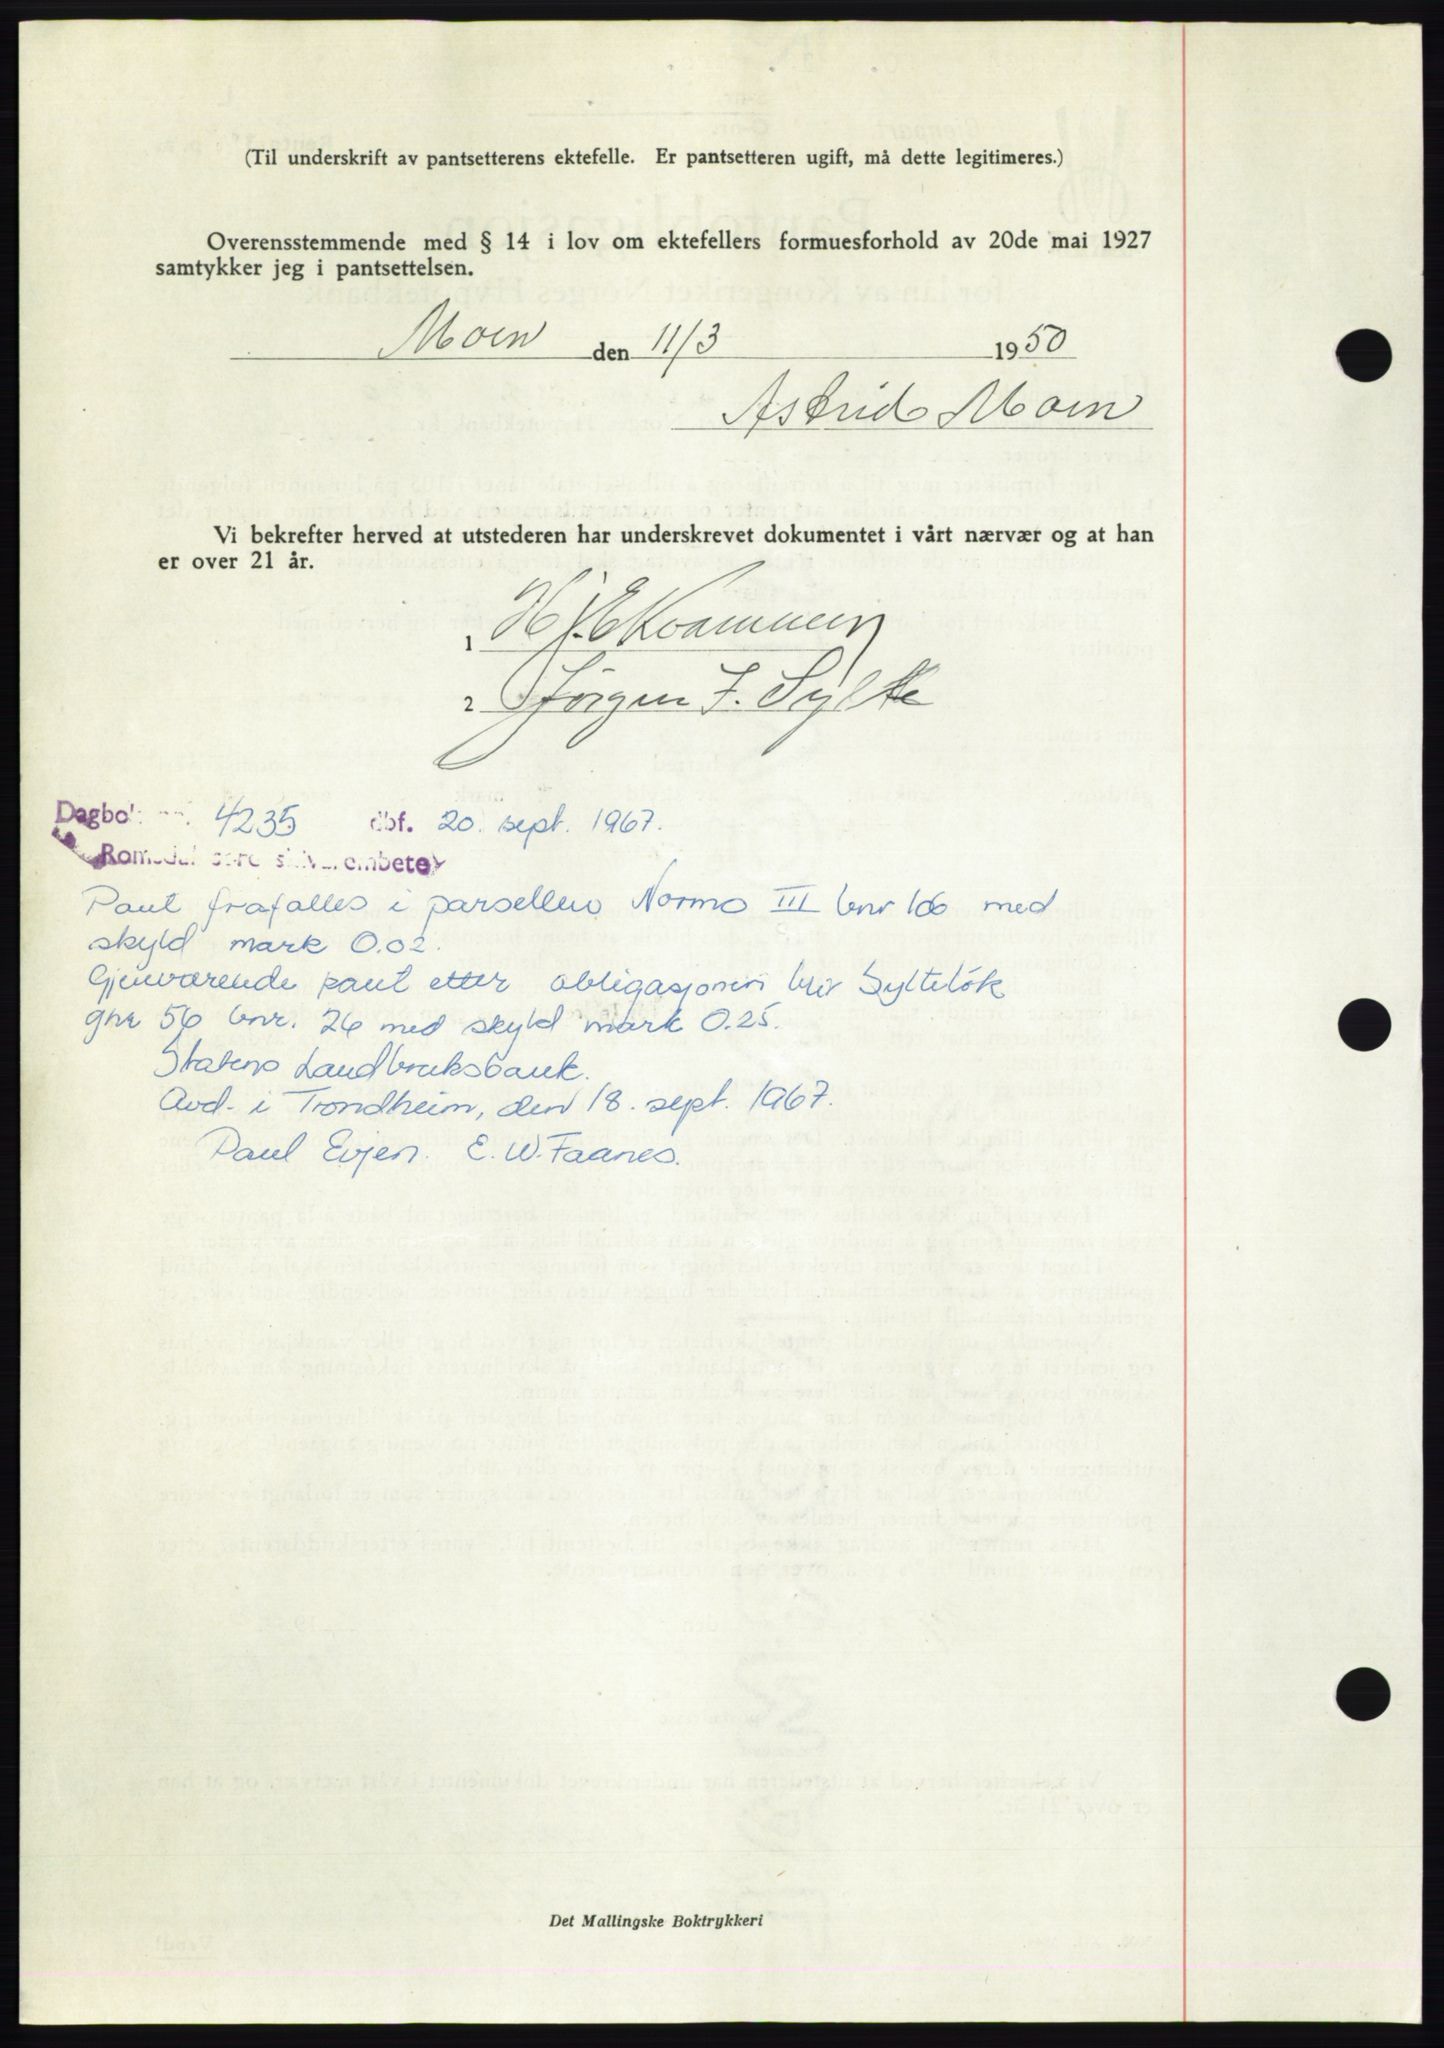 (Til underskrift av pantsetterens ektefelle. Er pantsetteren ugift, må dette legitimeres.)
Overensstemmende med § 14 i lov om ektefellers formuesforhold av 20de mai 1927
samtykker jeg i pantsettelsen.
Moen den 11/3 1950
Astrid Moen
Vi bekrefter herved at utstederen har underskrevet dokumentet i vårt nærvær og at han
er over 21 år.
1 Hj. E Kvammen
2 Jørgen J. Sylte
4235 dbf. 20. sept. 1967.
Pant frafalles i parsellen Normo III bnr 106 med
skyld mark 0.02.
Gjenværende pant etter obligasjonen blir Sylteløk
gnr 56 bnr. 26 med skyld mark 0.25.
Statens Landbruksbank.
Avd. i Trondheim, den 18. sept. 1967.
Paul Evjen. E. W. Faanes.
Det Mallingske Boktrykkeri